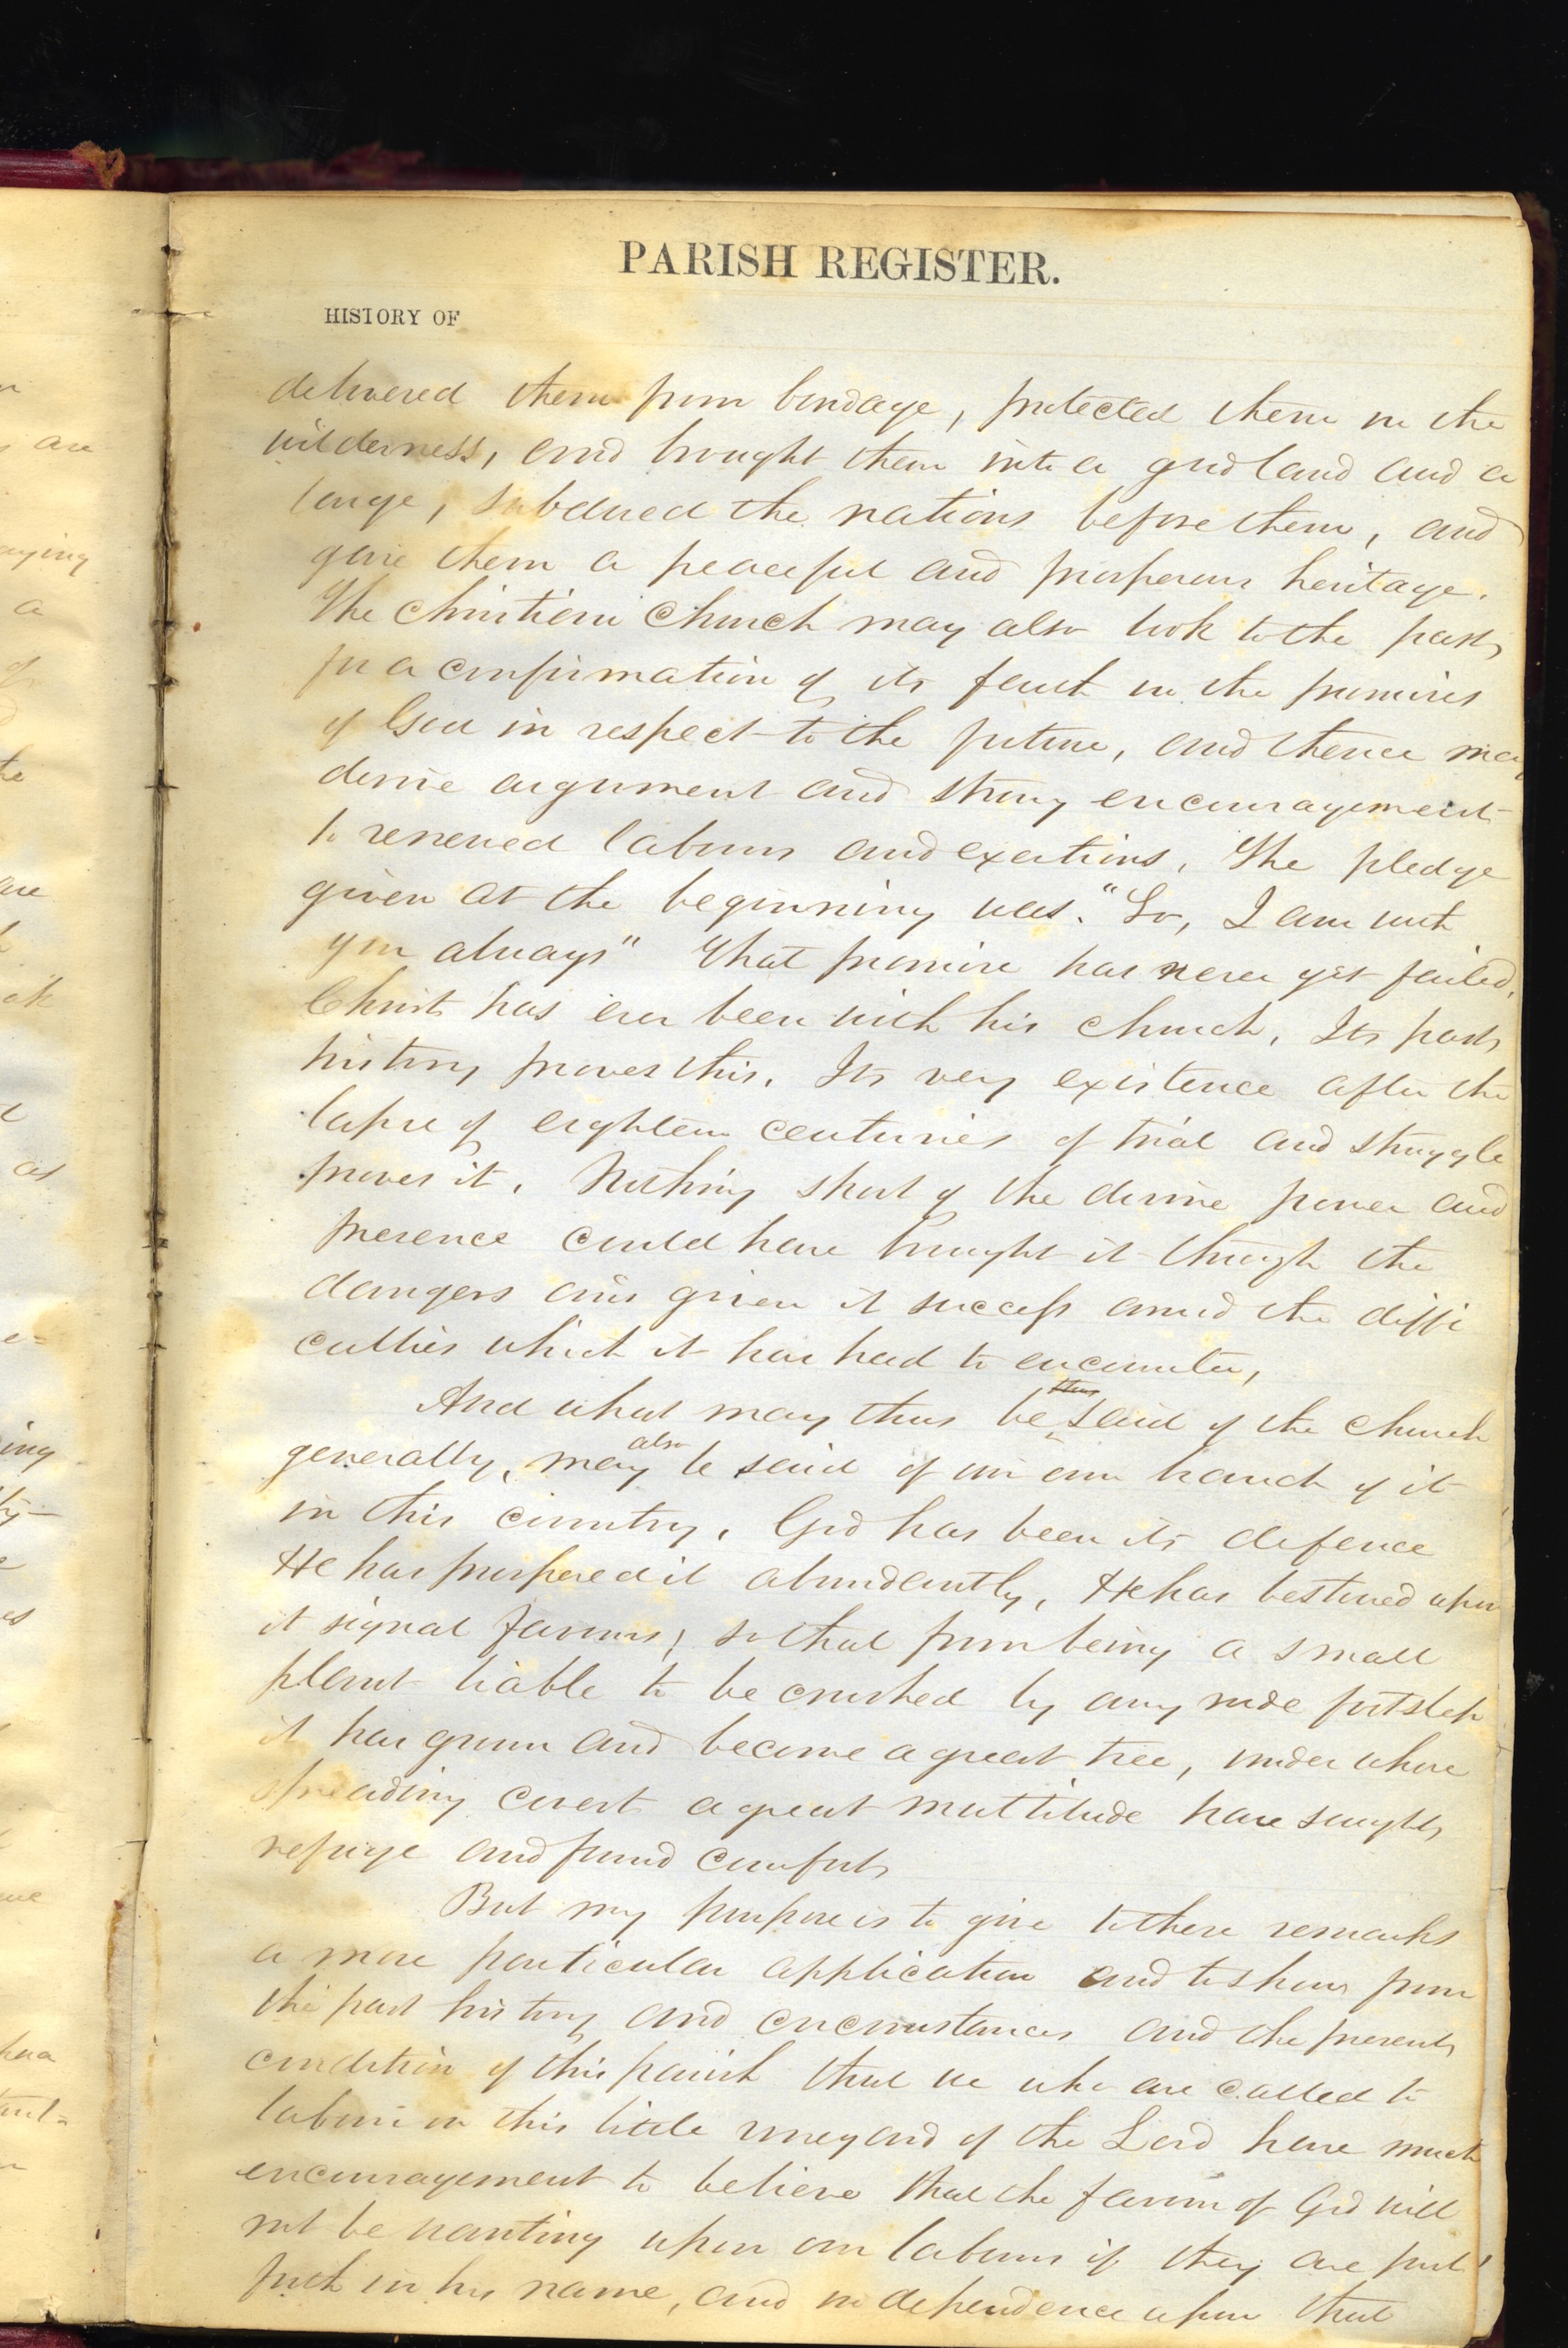 PARISH REGISTER.
HISTORY OF
delivered them from bondage, protected them in the
wilderness, and brought them into a good land and a
large, subdued the nations before them, and
gave them a peaceful and prosperous heritage.
The Christian Church may also look to the past
for a confirmation of its faith in the promises
of God in respect to the future, and thence may
derive argument and strong encouragement
to renewed labours and exertions. The pledge
given at the beginning was. "Lo, I am with
you always" That promise has never yet failed.
Christ has ever been with his church. Its past
history proves this. Its very existence after the
lapse of eighteen centuries of trial and struggle
proves it. Nothing short of the divine power and
presence could have brought it through the
dangers and given it success amid the diffi
culties which it has had to encounter,
And what may thus be said of the church
generally, may also be said of our own branch of it
in this country. God has been its defence
He has prospered it abundantly. He has bestowed upon
it signal favours; so that from being a small
plant liable to be crushed by any rude footstep
it has grown and become a great tree, under whose
spreading covert a great multitude have sought
refuge and found comfort
But my purpose is to give to these remarks
a more particular application and to show from
the past history and circumstances and the present
condition of this parish that we who are called to
labour in this little vineyard of the Lord have much
encouragement to believe that the favour of God will
not be wanting upon our labours if they are put
forth in his name, and in dependence upon that
are
aying
a
of
are
as
ing
es